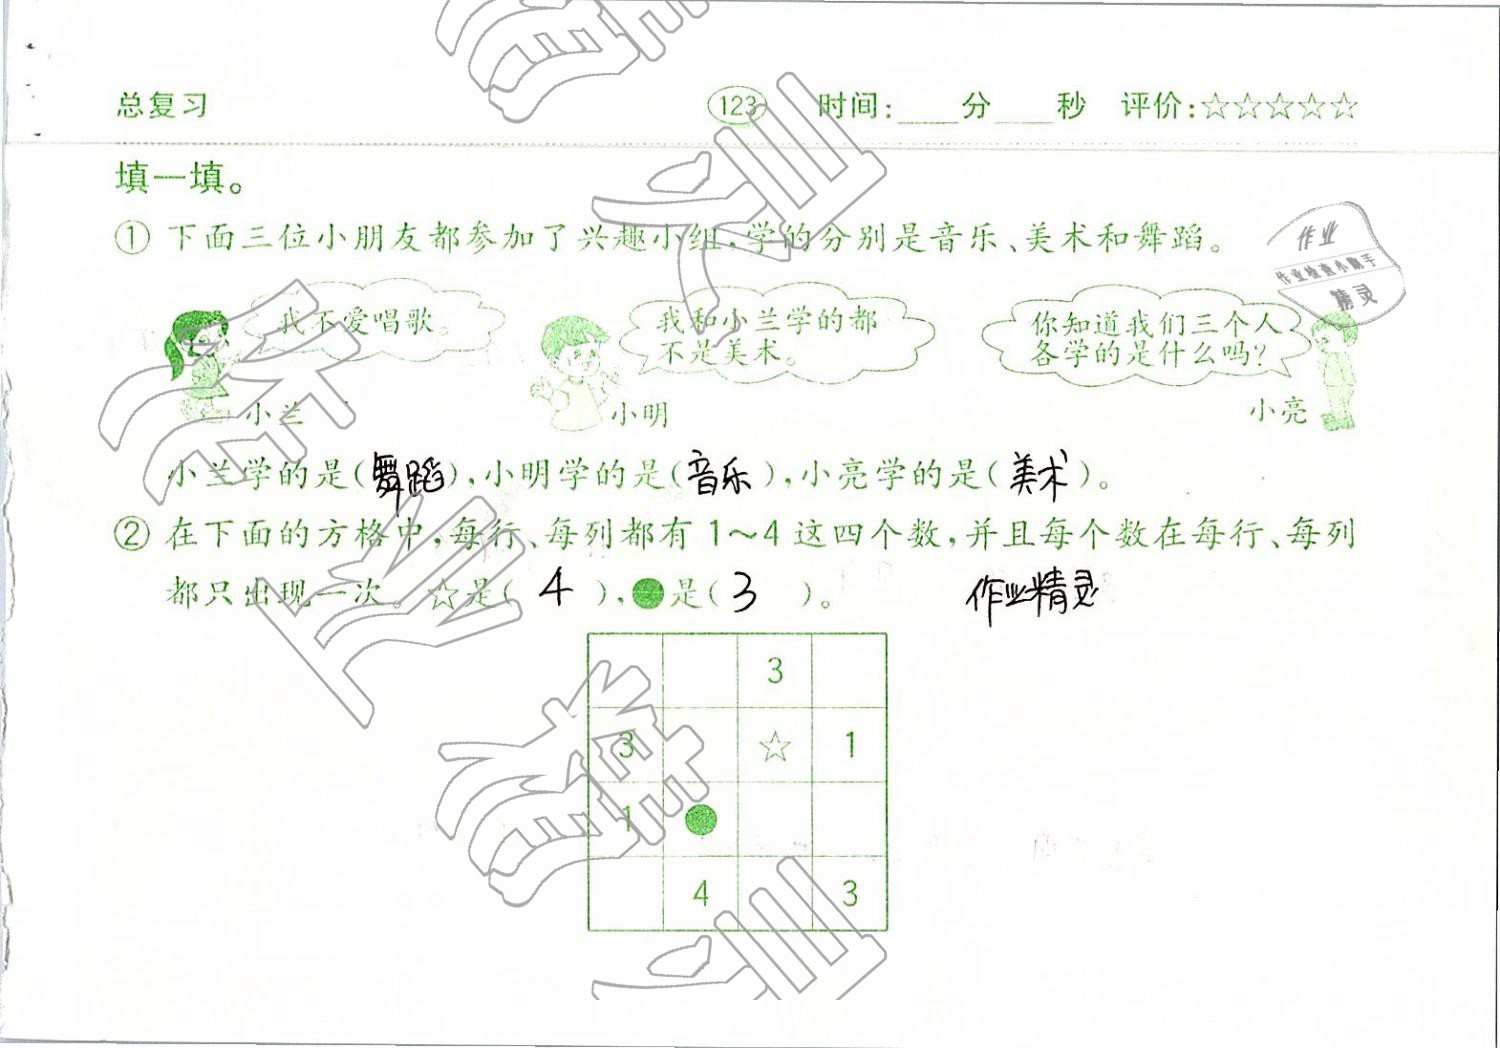 总复习 123 时间:____分____秒 评价:☆☆☆☆☆
填一填。
① 下面三位小朋友都参加了兴趣小组,学的分别是音乐、美术和舞蹈。
我不爱唱歌。
小兰
我和小兰学的都
不是美术。
小明
你知道我们三个人
各学的是什么吗?
小亮
作业
作业检查小助手
精灵
小兰学的是(舞蹈),小明学的是(音乐),小亮学的是(美术)。
② 在下面的方格中,每行、每列都有1~4这四个数,并且每个数在每行、每列
都只出现一次。☆是( 4 ),●是( 3 )。 作业精灵
3
3 ☆ 1
1 ●
4 3